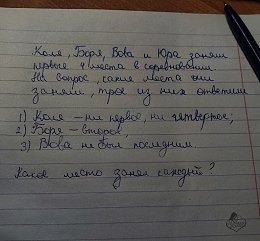 Коля, Боря, Вова и Юра заняли
первые 4 места в соревновании.
На вопрос, какие места они
заняли, трое из них ответили
1) Коля – ни первое, ни четвертое;
2) Боря – второе,
3) Вова не был последним.
Какое место занял каждый?